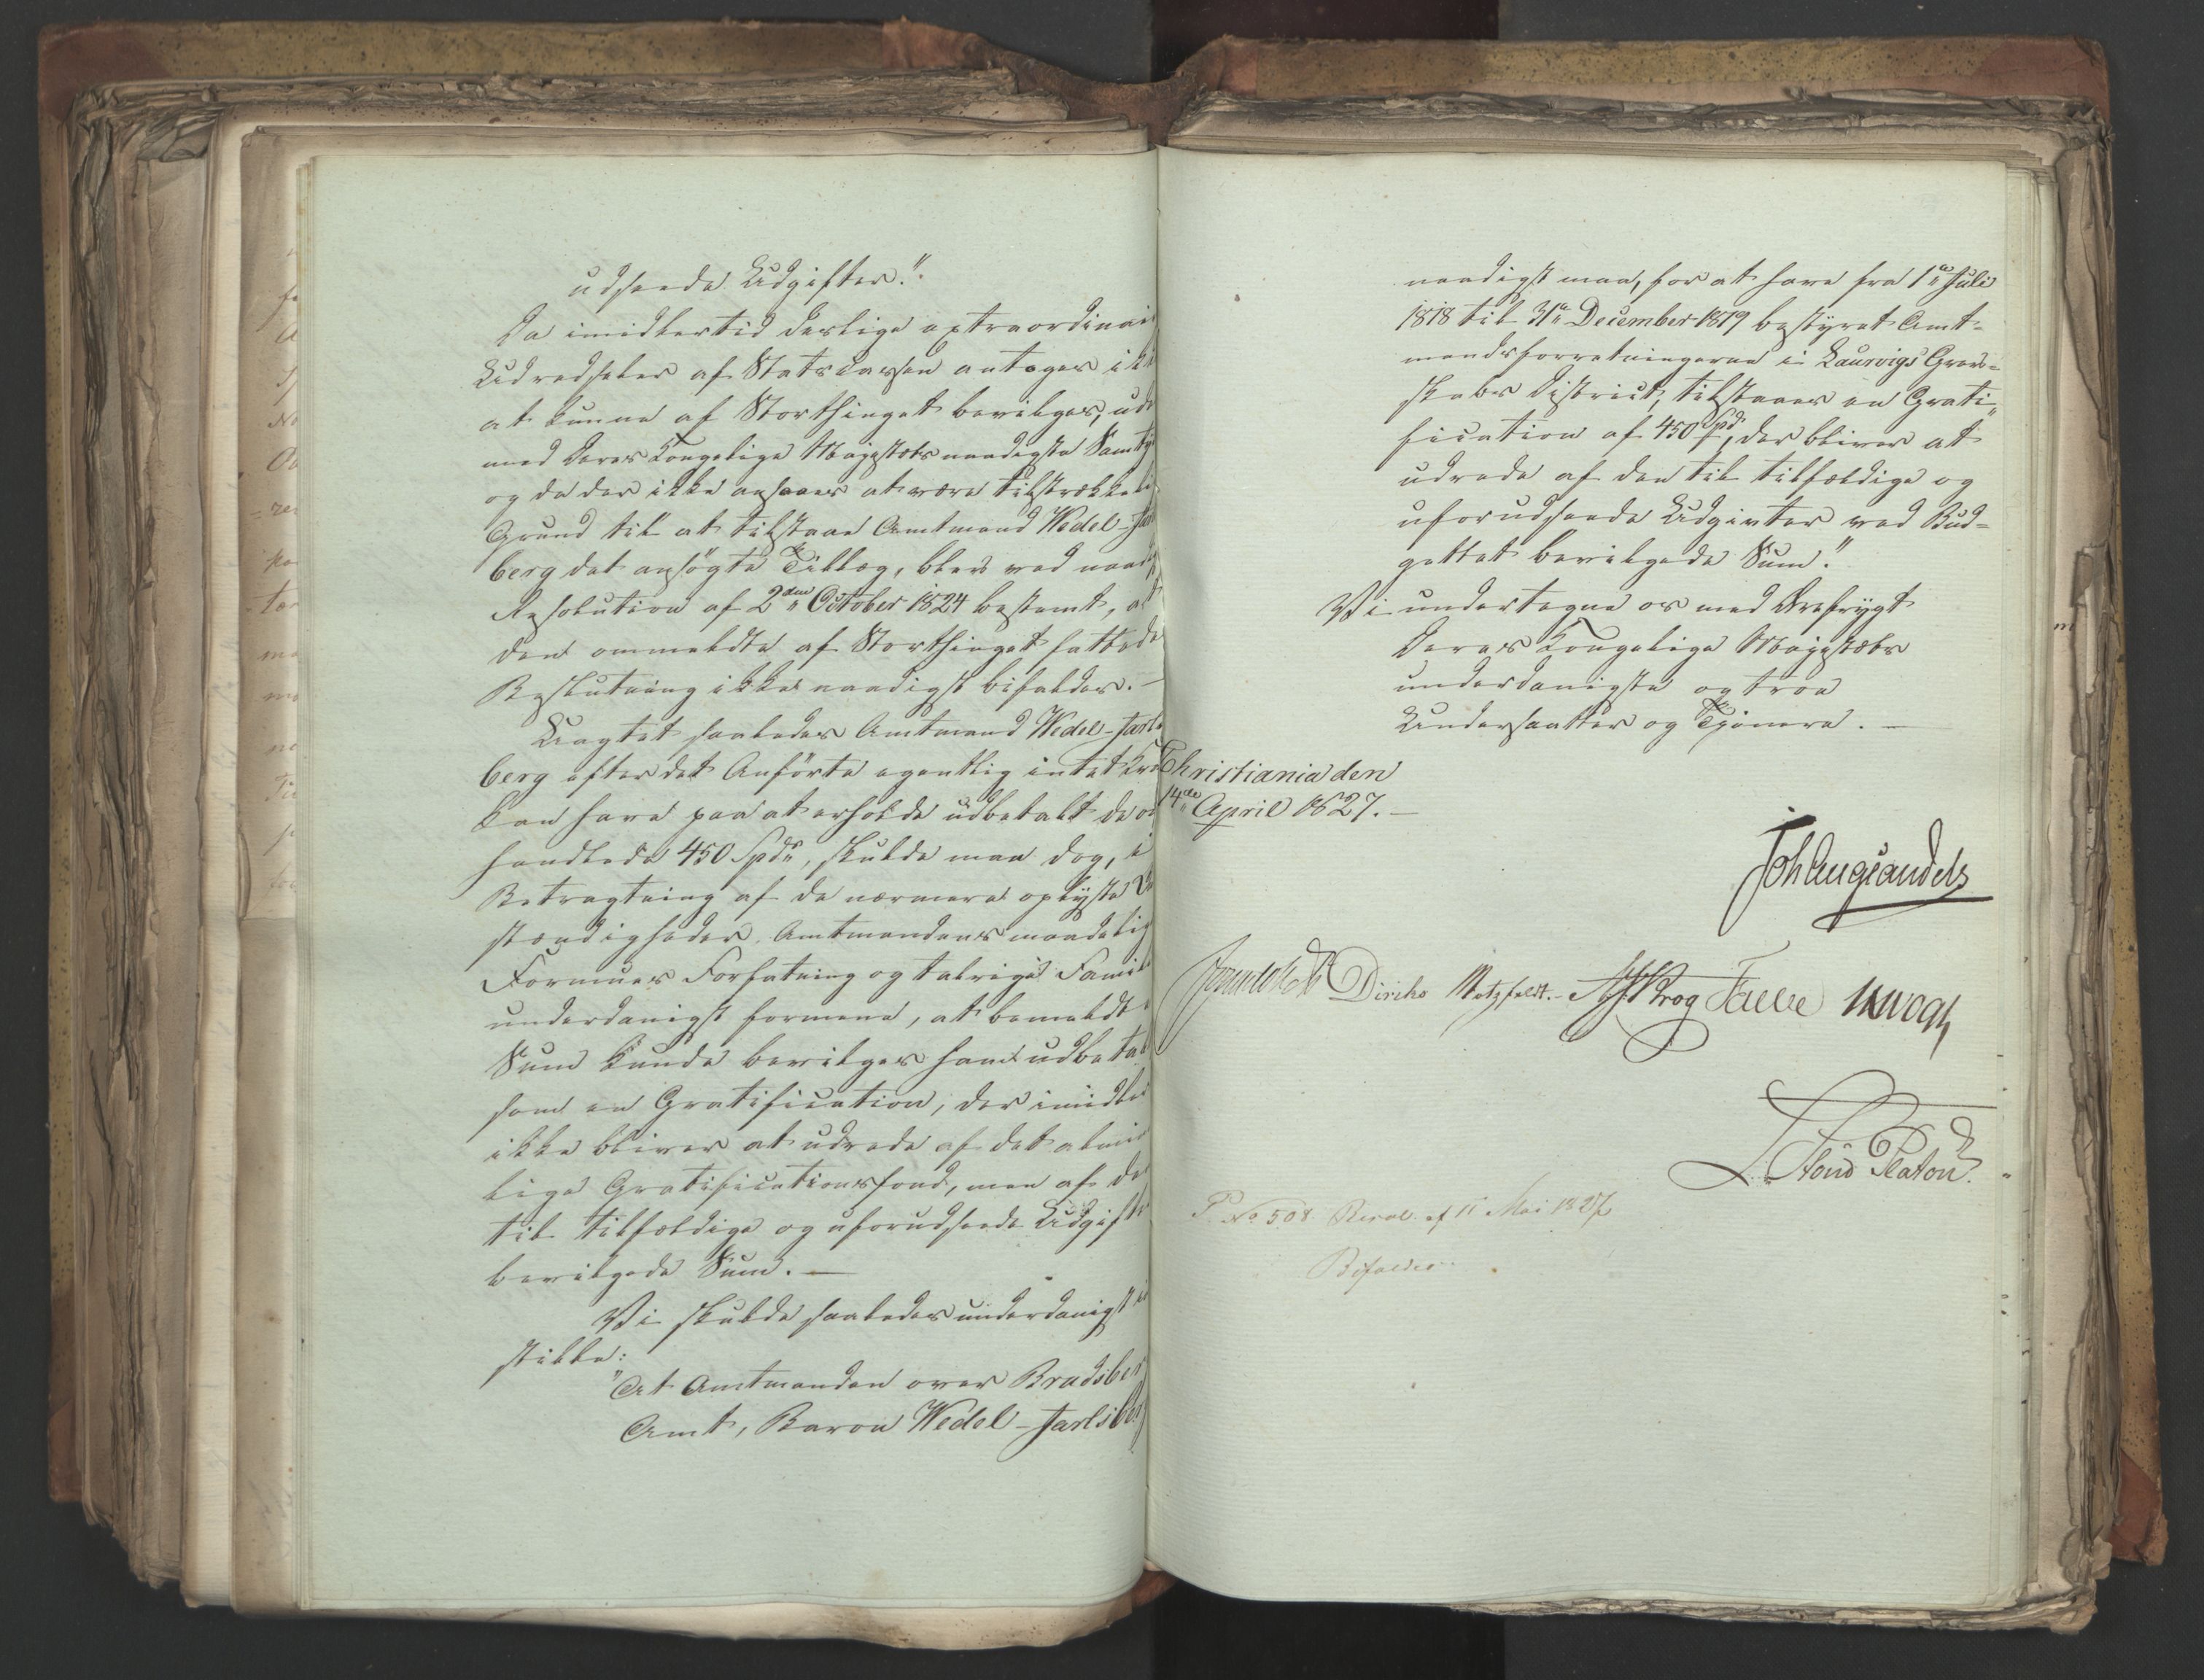 udseede Udgifter."
Da imidlertid deslige extraordinair
Udredseler af Statscassen antages ik
at kunne af Storthinget bevilges, ude
med Deres Kongelige Majestæts naadigste Samty
og da der ikke ansees at være tilstrækkeli
Grund til at tilstaae Amtmand Wedel-Jarls
berg det ansögte Tillæg, blev ved naadigst
Resolution af 2den October 1824 bestemt, at
den ommeldte af Storthinget fattede
Beslutning ikke naadigst bifaldes. –
Uagtet saaledes Amtmand Wedel-Jarls
berg efter det Anförte egentlig intet Kra
kan have paa at erholde udbetalt de om
handlede 450 Spdr, skulde man dog, i
Betragtning af de nærmere oplyste Om
stændigheder, Amtmandens maadelig
Formues Forfatning og talrige Famili
underdanigst formene, at bemeldte
Sum kunde bevilges ham udbetal
som en Gratification, der imidler
ikke bliver at udrede af det almin
lige Gratificationsfond, men af de
til tilfældige og uforudseede Udgifte
bevilgede Sum. –
Vi skulde saaledes underdanigst in
stille:
"At Amtmanden over Bradsber
Amt, Baron Wedel-Jarlsber
naadigst maa, for at have fra 1ste Juli
1818 til 31te December 1819 bestyret Amt-
mandsforretningerne i Laurvigs Grev-
skabs District, tilstaaes en Grati
fication af 450 Spd, der bliver at
udrede af den til tilfældige og
uforudseede Udgivter ved Bud-
gettet bevilgede Sum."
Vi undertegne os med Ærefrygt
Deres Kongelige Majestæts
underdanigste og troe
Undersaatter og Tjenere. –
Christiania den
14de April 1827. –
Joh Aug Sandels
Collett Diriks Motzfeldt. Krog Fasting
L. Stoud Platou
P. No 508. Resol. af 11 Mai 1827
Bifaldes